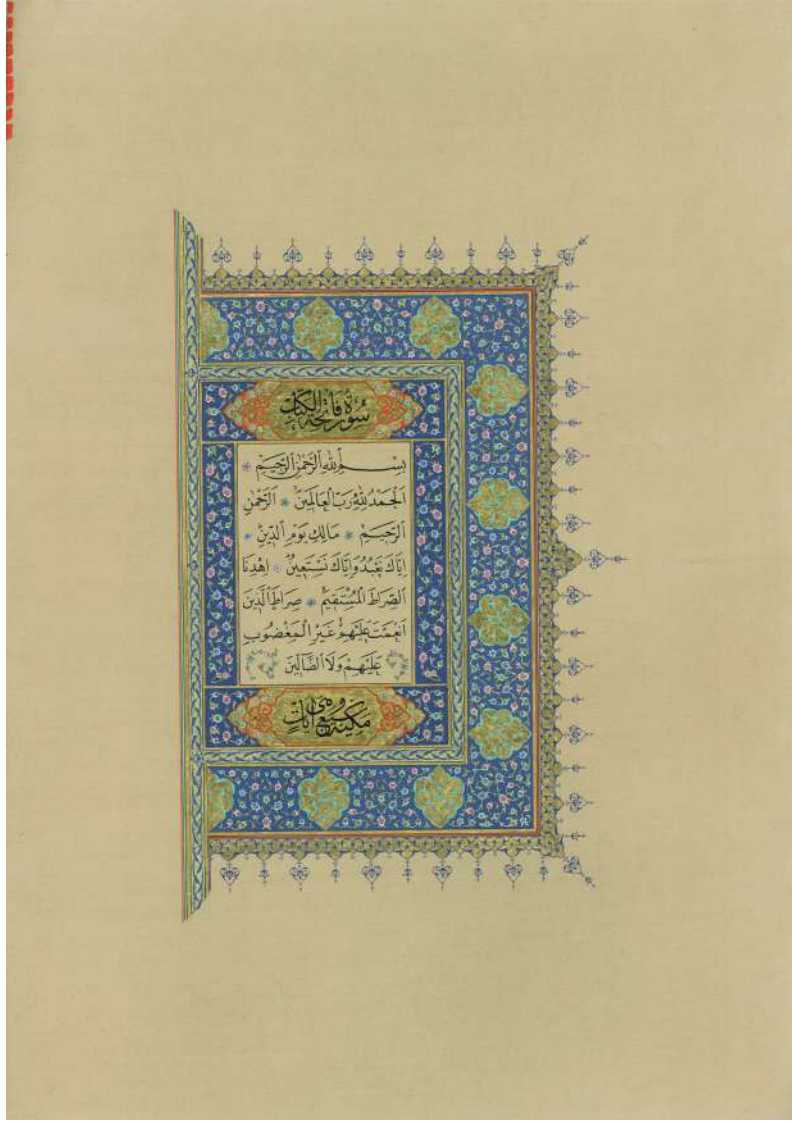 سُورَةُ فَاتِحَةِ الْكِتَابِ
بِسْمِ اللّٰهِ الرَّحْمٰنِ الرَّحِيمِ
اَلْحَمْدُ لِلّٰهِ رَبِّ الْعَالَمِينَ اَلرَّحْمٰنِ
الرَّحِيمِ مَالِكِ يَوْمِ الدِّينِ
اِيَّاكَ نَعْبُدُ وَاِيَّاكَ نَسْتَعِينُ اِهْدِنَا
الصِّرَاطَ الْمُسْتَقِيمَ صِرَاطَ الَّذِينَ
اَنْعَمْتَ عَلَيْهِمْ غَيْرِ الْمَغْضُوبِ
عَلَيْهِمْ وَلَا الضَّالِّينَ
مَكِّيَّةٌ وَهِيَ سَبْعُ اٰيَاتٍ